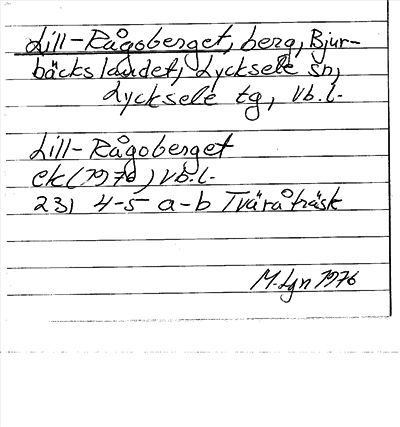 Lill-Rågoberget, berg, Bjur-
bäckslandet, Lycksele sn,
Lycksele tg, Vb.l.
Lill-Rågoberget
ek (1976) Vb.l.
23J 4-5 a-b Tväråträsk
M. Lgn 1976